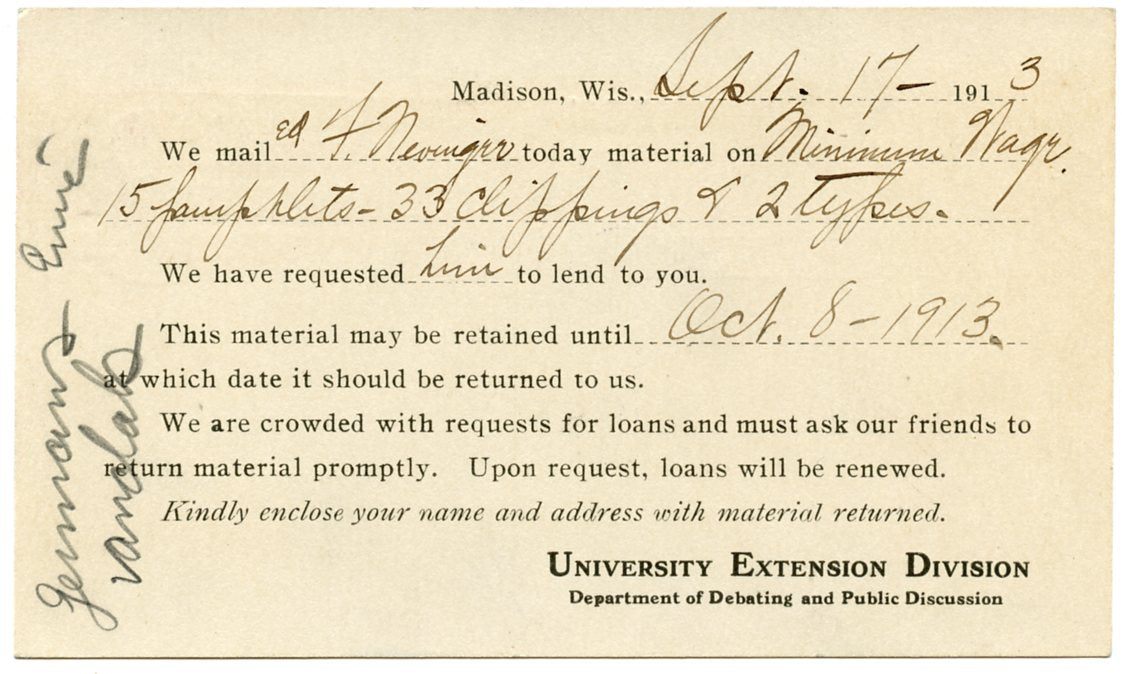 Madison, Wis., Sept. 17- 1913
We mailed F. Nevinger today material on Minimum Wage.
15 pamphlets - 33 clippings & 2 types.
We have requested him to lend to you.
This material may be retained until Oct. 8 - 1913.
at which date it should be returned to us.
We are crowded with requests for loans and must ask our friends to
return material promptly. Upon request, loans will be renewed.
Kindly enclose your name and address with material returned.
UNIVERSITY EXTENSION DIVISION
Department of Debating and Public Discussion